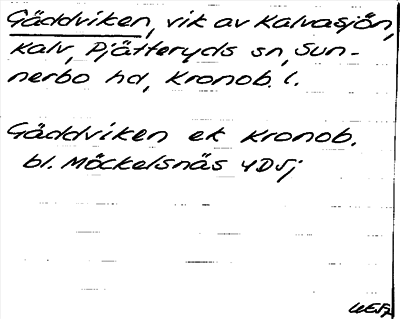 Gäddviken, vik av Kalvasjön,
Kalv, Pjätteryds sn, Sun-
nerbo hd, Kronob. l.
Gäddviken ek Kronob.
bl. Möckelsnäs 4D5j